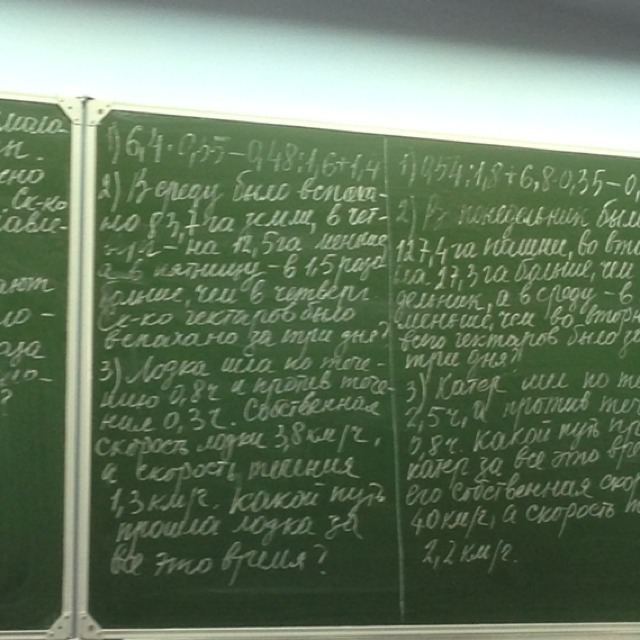 мала
н.
Ск-ко
1) 6,4 · 0,35 − 0,48 : 1,6 + 1,4
2) В среду было вспаха-
но 83,7 га земли, в чет-
на 12,5 га меньше
а в пятницу - в 1,5 раза
больше, чем в четверг.
Ск-ко гектаров было
вспахано за три дня?
3) Лодка шла по тече-
нию 0,8 ч и против тече-
ния 0,3 ч. Собственная
скорость лодки 3,8 км/ч,
а скорость течения
1,3 км/ч. Какой путь
прошла лодка за
все это время?
1) 0,54 : 1,8 + 6,8 · 0,35 − 0
2) В понедельник было
127,4 га пашни, во вто
на 27,3 га больше, чем
дельник, а в среду - в
меньше, чем во вторн
гектаров было
три дня?
3) Катер шел по т
2,5 ч, а против те
0,8 ч. Какой путь пр
катер за все это вре
его собственная скор
40 км/ч, а скорость т
2,2 км/ч.